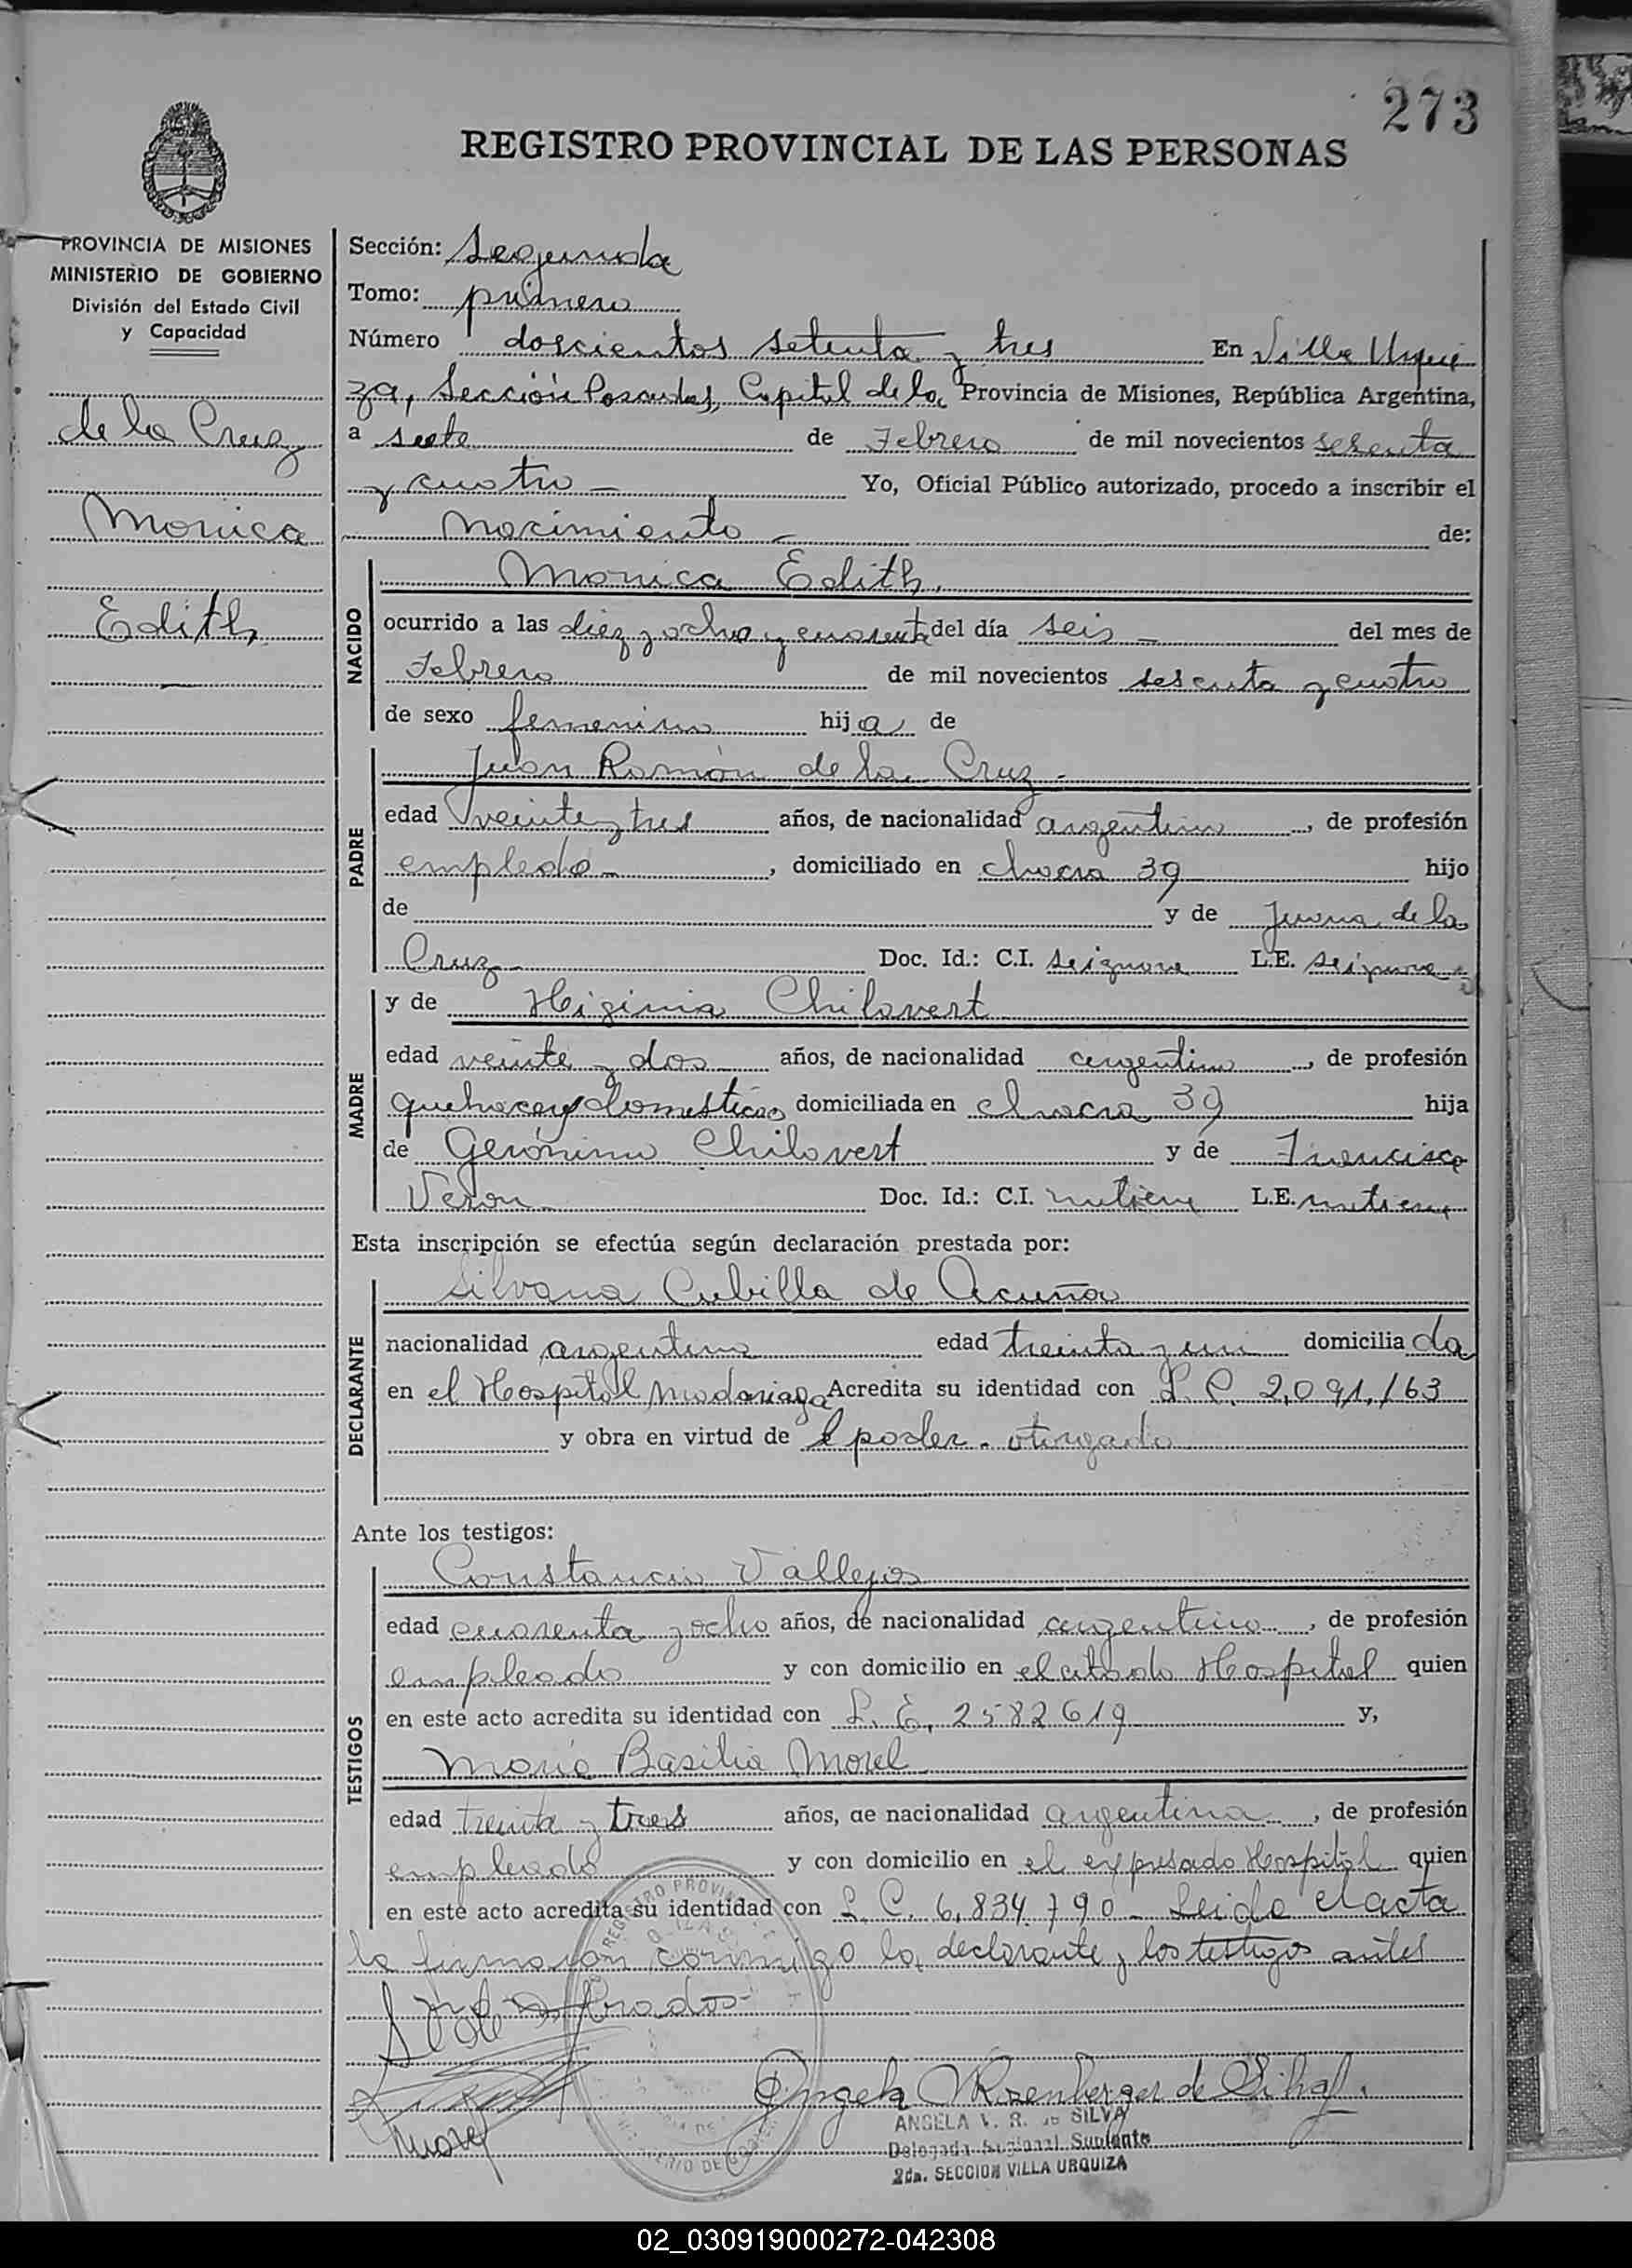 273
REGISTRO PROVINCIAL DE LAS PERSONAS
PROVINCIA DE MISIONES
MINISTERIO DE GOBIERNO
División del Estado Civil
y Capacidad
de la Cruz
Monica
Edith
Sección: Segunda
Tomo: primero
Número doscientos setenta y tres En Villa Urqui
za, Sección Posadas, Capital de la Provincia de Misiones, República Argentina,
a siete de Febrero de mil novecientos sesenta
y cuatro — Yo, Oficial Público autorizado, procedo a inscribir el
Nacimiento — de:
NACIDO
Monica Edith.
ocurrido a las diez y ocho y cuarenta del día seis — del mes de
Febrero de mil novecientos sesenta y cuatro
de sexo femenino hija de
PADRE
Juan Ramón de la Cruz -
edad veinte y tres años, de nacionalidad argentino, de profesión
empleado, domiciliado en chacra 39 hijo
de y de Juana de la
Cruz Doc. Id.: C.I. seignora L.E. seignora
MADRE
y de Higinia Chilavert
edad veinte y dos años, de nacionalidad argentina, de profesión
quehaceres domesticos domiciliada en chacra 39 hija
de Gerónimo Chilavert y de Francisca
Veron Doc. Id.: C.I. notiene L.E. notiene
Esta inscripción se efectúa según declaración prestada por:
DECLARANTE
Silvana Cubilla de Acuña
nacionalidad argentina edad treinta y un domiciliada
en el Hospital Madariaga Acredita su identidad con L.C. 2,091,163
y obra en virtud de poder - otorgado
Ante los testigos:
TESTIGOS
Constancio Vallejos
edad cuarenta y ocho años, de nacionalidad argentino, de profesión
empleado y con domicilio en el citado Hospital quien
en este acto acredita su identidad con L. E. 2582619 y,
Maria Basilia Morel
edad treinta y tres años, de nacionalidad argentina, de profesión
empleado y con domicilio en el expresado Hospital quien
en este acto acredita su identidad con L. C. 6,834.790 - Leida el acta
la firmaron conmigo la declarante y los testigos antes
ANGELA V. R. de SILVA
Delegada Seccional Suplente
2da. SECCION VILLA URQUIZA
02_030919000272-042308